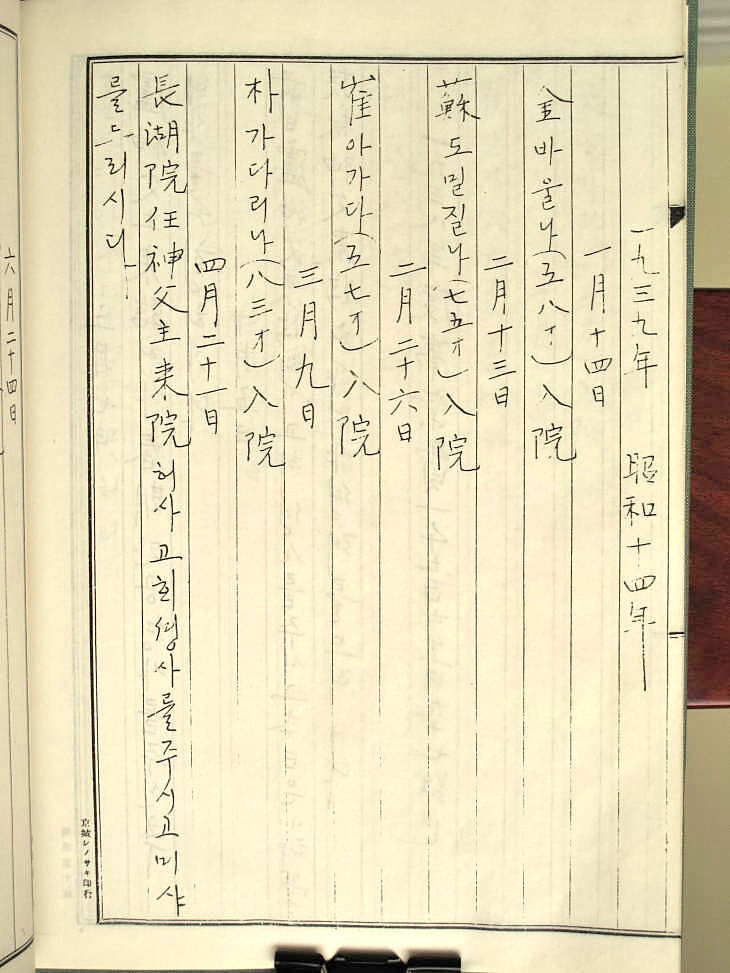 一九三九年 昭和十四年
一月十四日
金바울나(五八才)入院
二月十三日
蘇도밀질나(七五才)入院
二月二十六日
崔아가다(五七才)入院
三月九日
朴가다리나(八三才)入院
四月二十一日
長湖院任神父主来院허사고희생사를주시고미사
를드리시다
京城レノサキ印行
六月二十四日